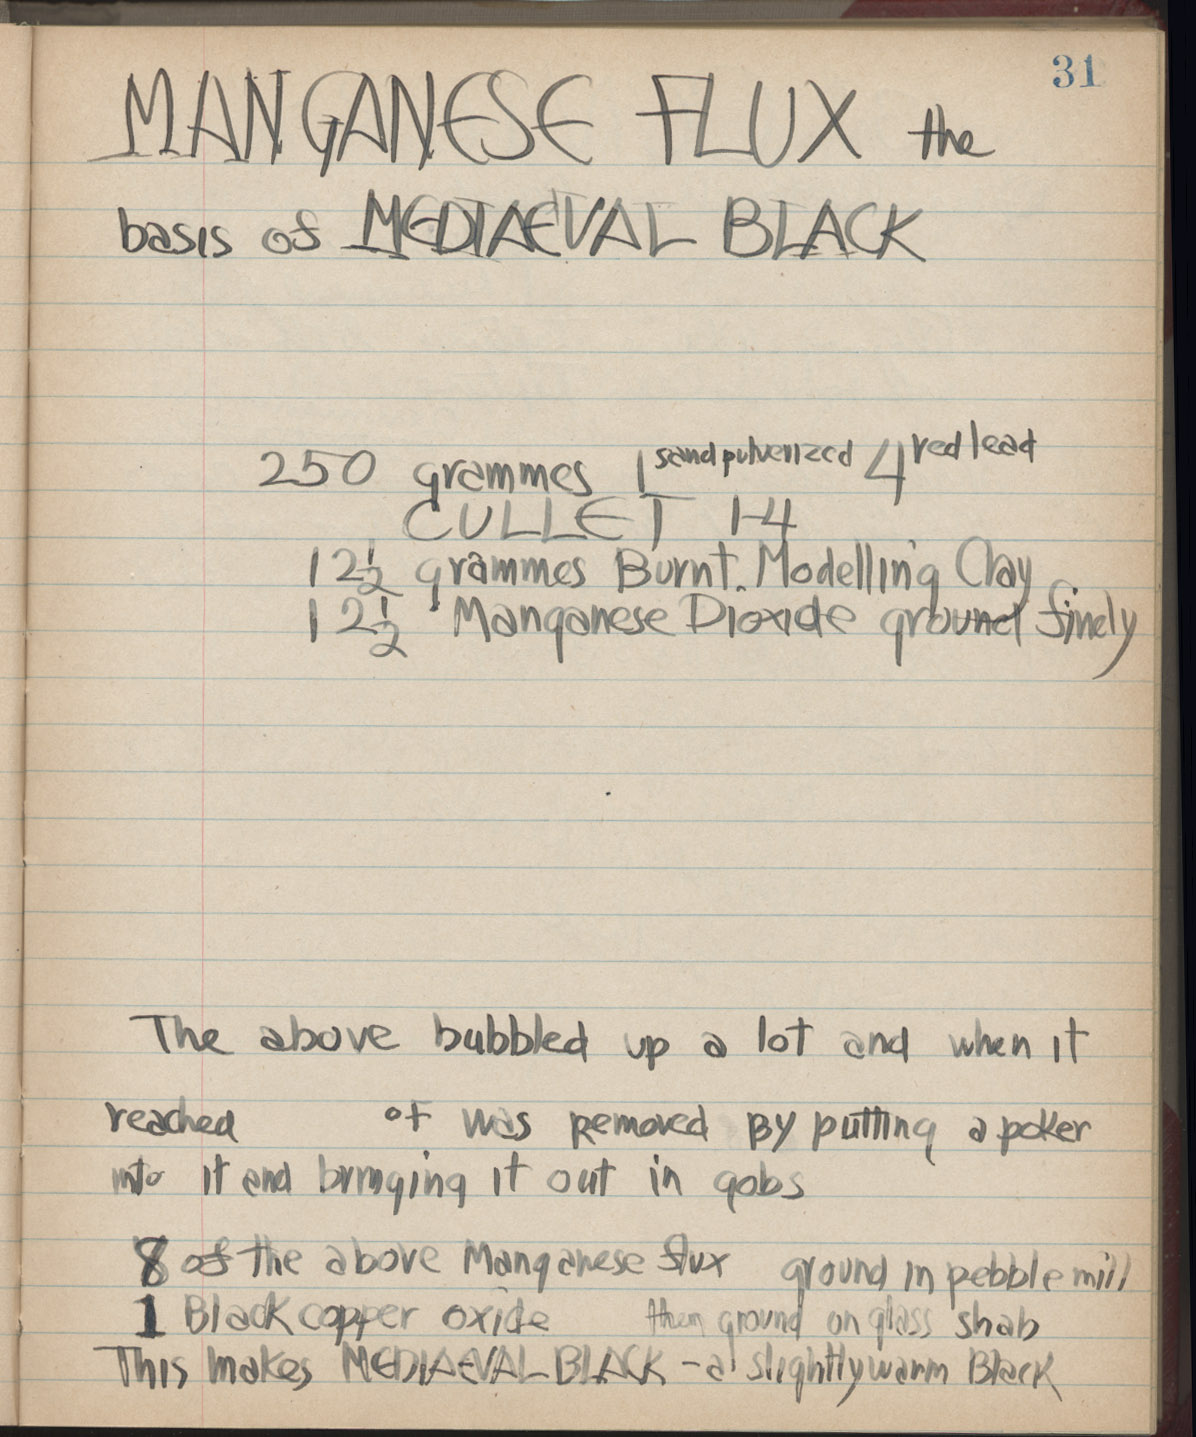 31
MANGANESE FLUX the
basis of MEDIAEVAL BLACK
250 grammes 1 sand pulverized 4 red lead
CULLET 1-4
12½ grammes Burnt Modelling Clay
12½ " Manganese Dioxide ground finely
The above bubbled up a lot and when it
reached of was removed by putting a poker
into it and bringing it out in gobs
8 of the above Manganese flux ground in pebble mill
1 Black copper oxide then ground on glass slab
This makes MEDIAEVAL BLACK - a slightly warm Black